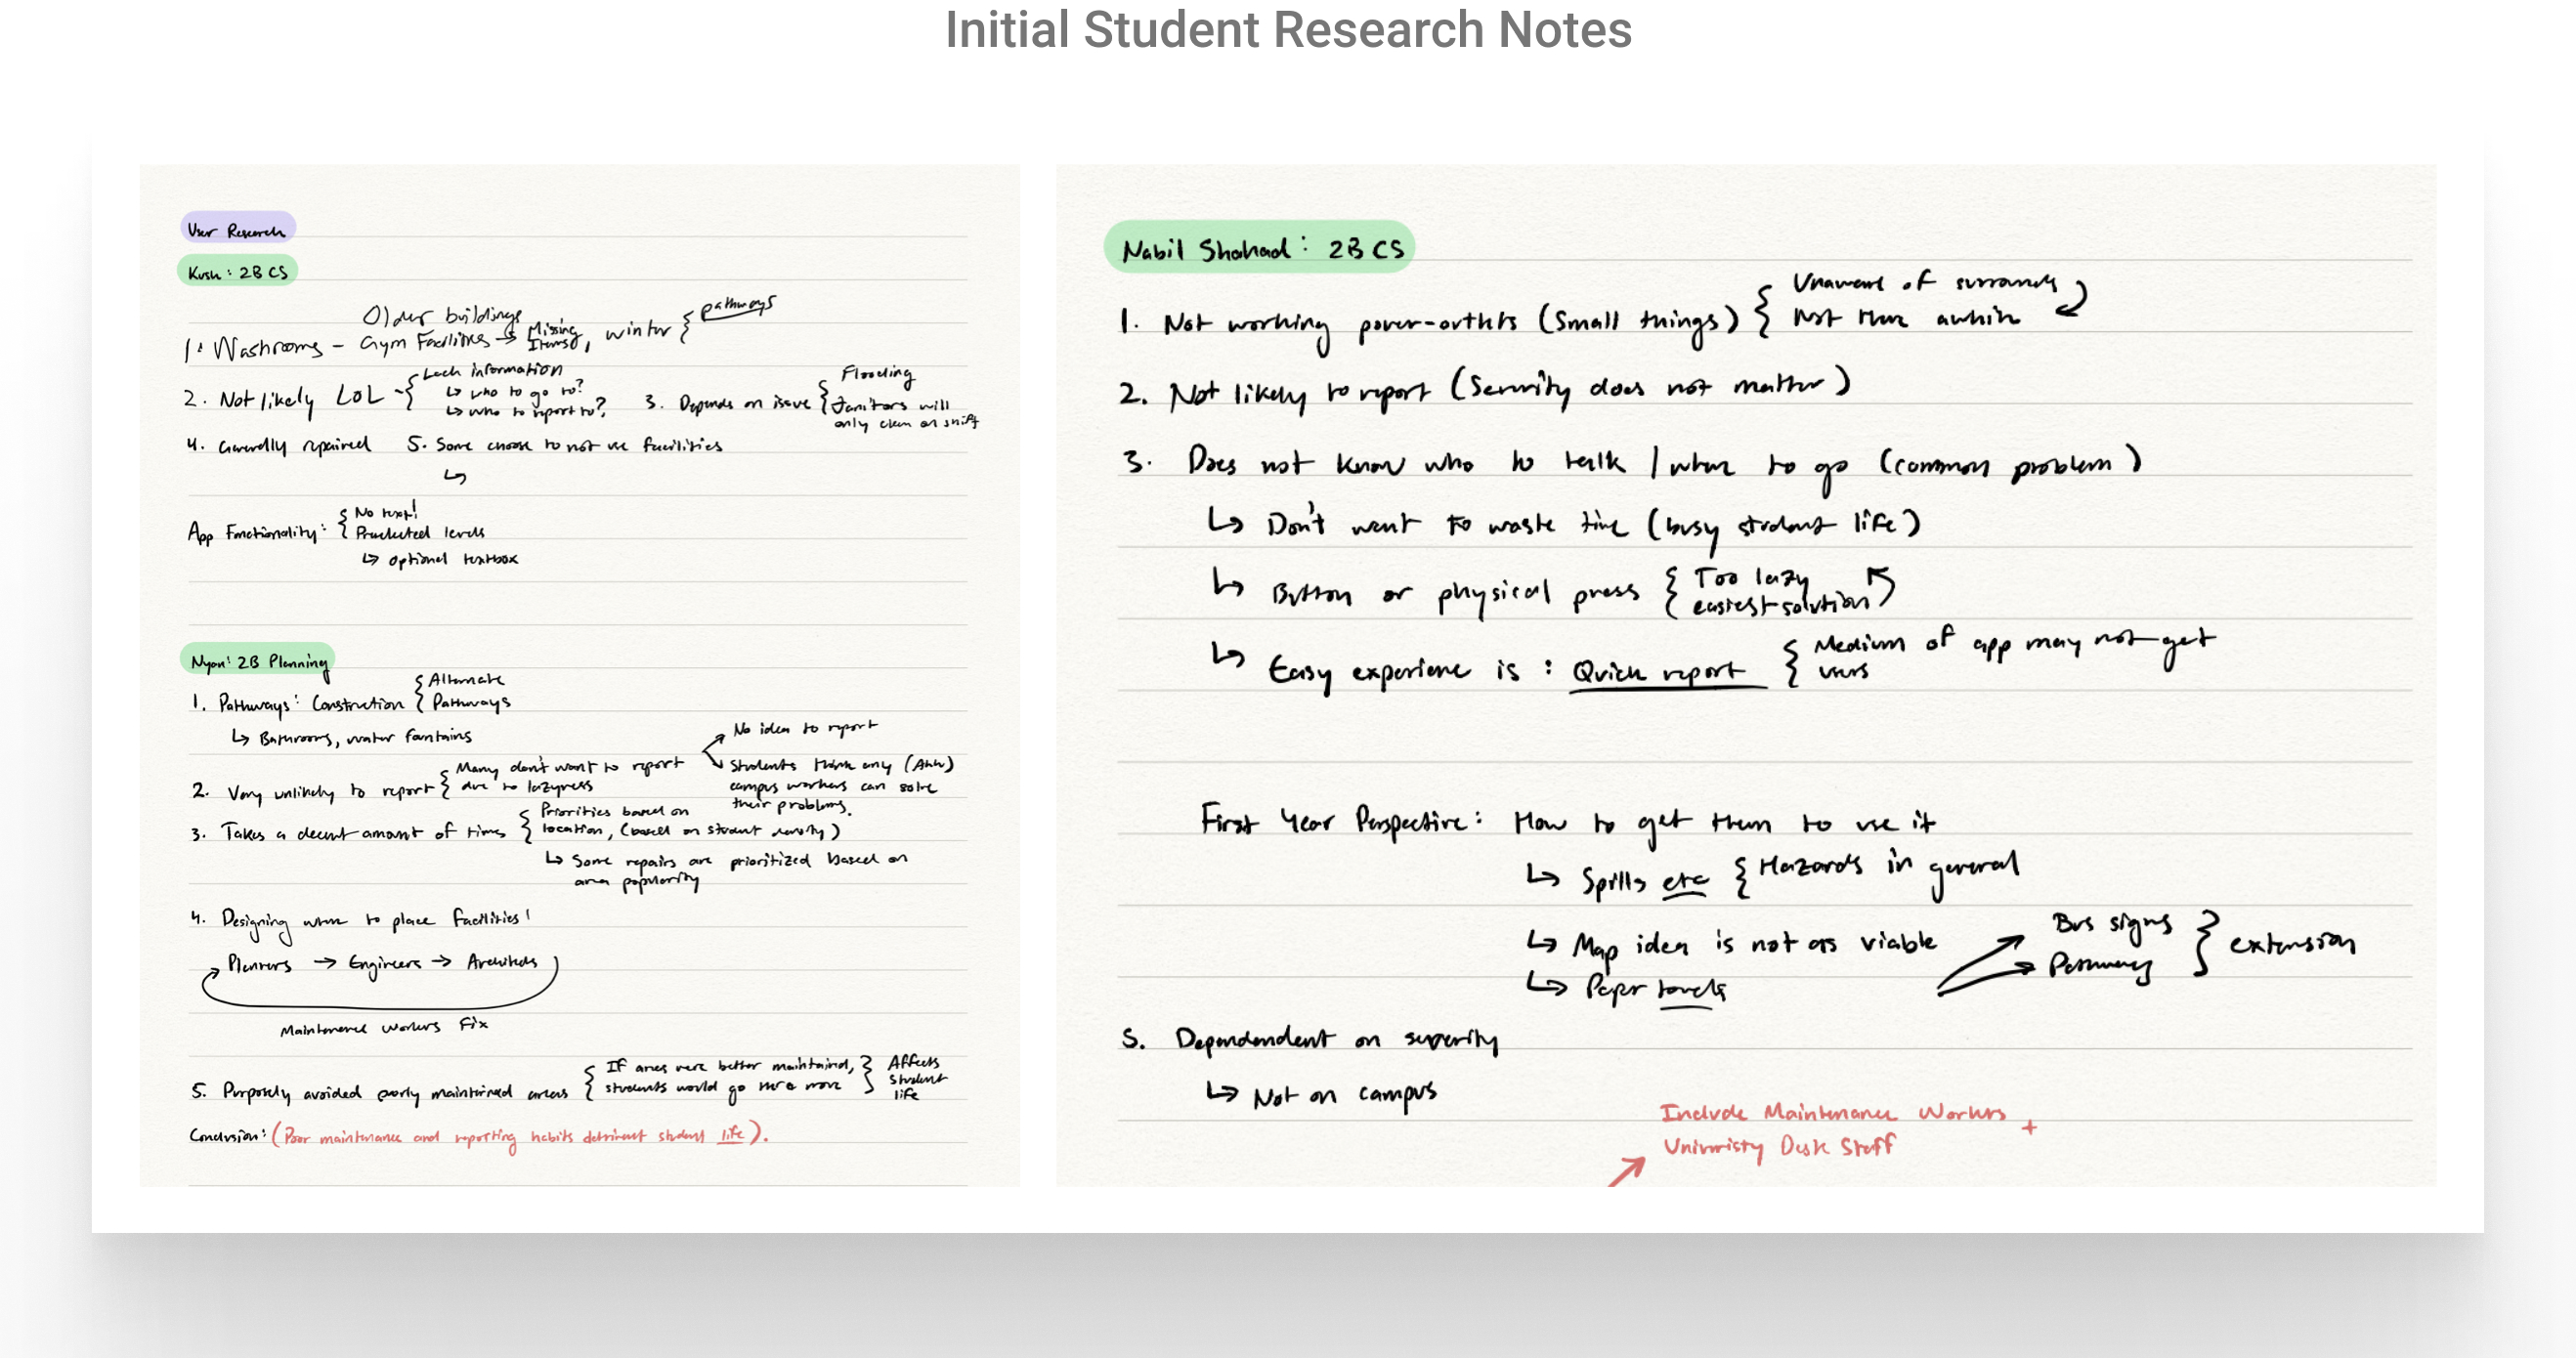 Initial Student Research Notes
User Research
Kush: 2B CS
Older buildings
1: Washrooms - Gym Facilities → Missing Items, winter { pathways
2. Not likely LOL - { Lack information
↳ who to go to?
↳ who to report to?
3. Depends on issue { Flooding
Janitors will
only clean on shift
4. Generally repaired 5. Some choose to not use facilities
↳
App Functionality: { No text!
Preselected levels
↳ optional textbox
2B Planning
1. Pathways: Construction { Alternate
Pathways
↳ Bathrooms, water fountains
2. Very unlikely to report { Many don't want to report
due to lazyness
No idea to report
Students think any
campus workers can solve
their problems.
3. Takes a decent amount of times { Priorities based on
location, (based on student density)
↳ Some repairs are prioritized based on
area popularity
4. Designing where to place facilities!
Planners → Engineers → Architects
Maintenance workers fix
5. Purposely avoided poorly maintained areas { If areas were better maintained,
students would go there more } Affects
student
life
Conclusion: (Poor maintenance and reporting habits detriment student life).
Nabil Shahad: 2B CS
1. Not working power-outlets (Small things) { Unaware of
Not there awhile
2. Not likely to report (Severity does not matter)
3. Does not know who to talk / where to go (common problem)
↳ Don't want to waste time (busy student life)
↳ Button or physical press { Too lazy
easiest solution
↳ Easy experience is : Quick report { Medium of app may not get
users
First Year Perspective: How to get them to use it
↳ Spills etc { Hazards in general
↳ Map idea is not as viable
Bus signs
Pathways } extension
↳ Paper towels
5. Dependendent on superity
↳ Not on campus
Include Maintenance Workers +
Univeristy Desk Staff